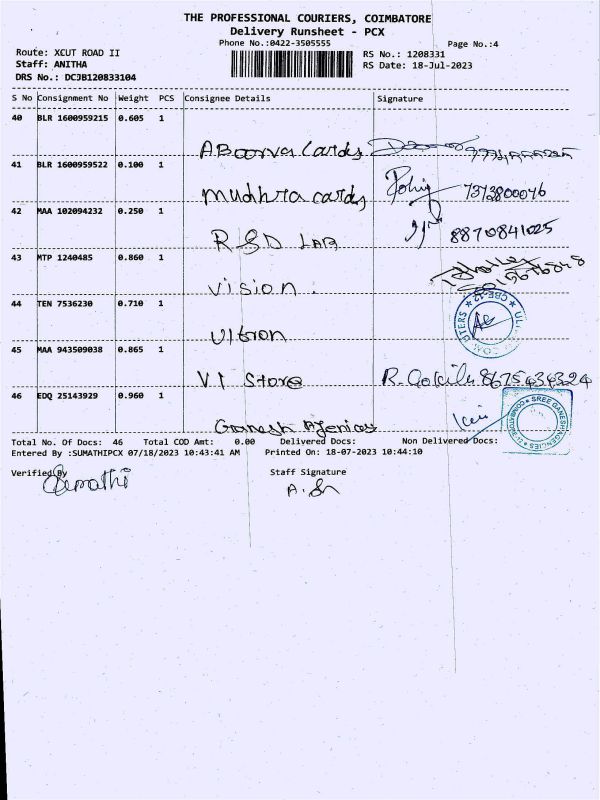 THE PROFESSIONAL COURIERS, COIMBATORE
Delivery Runsheet - PCX
Phone No.:0422-3505555
Page No.:4
Route: XCUT ROAD II
RS No.: 1208331
Staff: ANITHA
RS Date: 18-Jul-2023
DRS No.: DCJB120833104
S No Consignment No Weight PCS Consignee Details Signature
40 BLR 1600959215 0.605 1
ABoorva Cards
41 BLR 1600959522 0.100 1
Mudhra cards 7373800076
42 MAA 102094232 0.250 1
RSD LAB 8870841025
43 MTP 1240485 0.860 1
vision
44 TEN 7536230 0.710 1
Ultron
45 MAA 943509038 0.865 1
VI Store R.
46 EDQ 25143929 0.960 1
Ganesh Agencies
SREE GANESH AGENCIES
Total No. Of Docs: 46 Total COD Amt: 0.00 Delivered Docs: Non Delivered Docs:
Entered By :SUMATHIPCX 07/18/2023 10:43:41 AM Printed On: 18-07-2023 10:44:10
Verified By Staff Signature
Sumathi